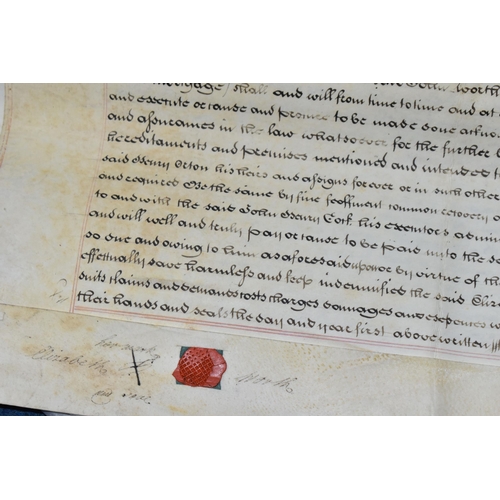 mortgage) shall and will from time to time and at
and execute or cause and procure to be made done
and assurances in the law whatsoever for the further
hereditaments and premises mentioned and intended
said Henry Orton his heirs and assigns for ever or in such other
and required Be the same by fine feoffment common recovery
to and with the said John Henry Cork his executors
and will well and truly pay or cause to be paid unto the
so due and owing to him as aforesaid upon or by virtue of
effectually save harmless and keep indemnified the said
suits claims and demands costs charges damages and expences
their hands and seals the day and year first above written
Elizabeth Worth